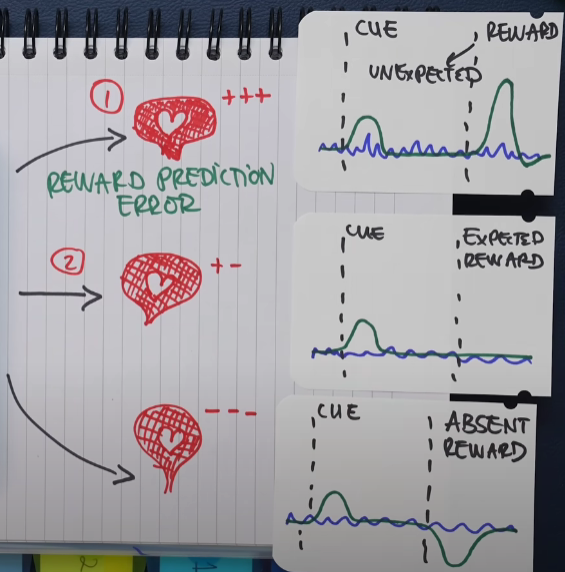 1
+++
REWARD PREDICTION
ERROR
2
+-
---
CUE
REWARD
UNEXPECTED
CUE
EXPECTED
REWARD
CUE
ABSENT
REWARD